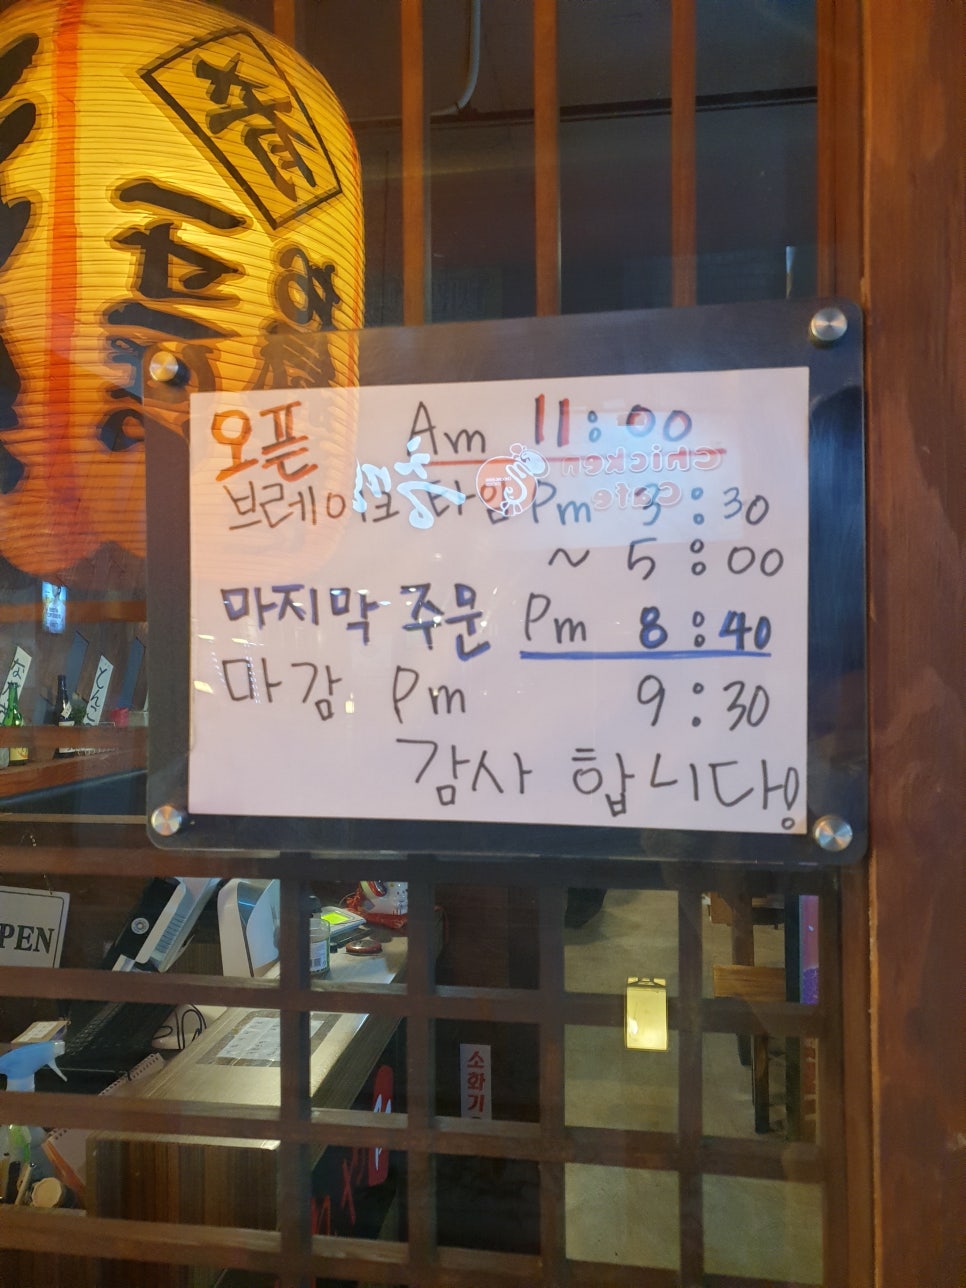 오픈 Am 11:00
브레이크 타임 Pm 3:30
~ 5:00
마지막 주문 Pm 8:40
마감 Pm 9:30
감사합니다!
chicken
cafe
PEN
소화기